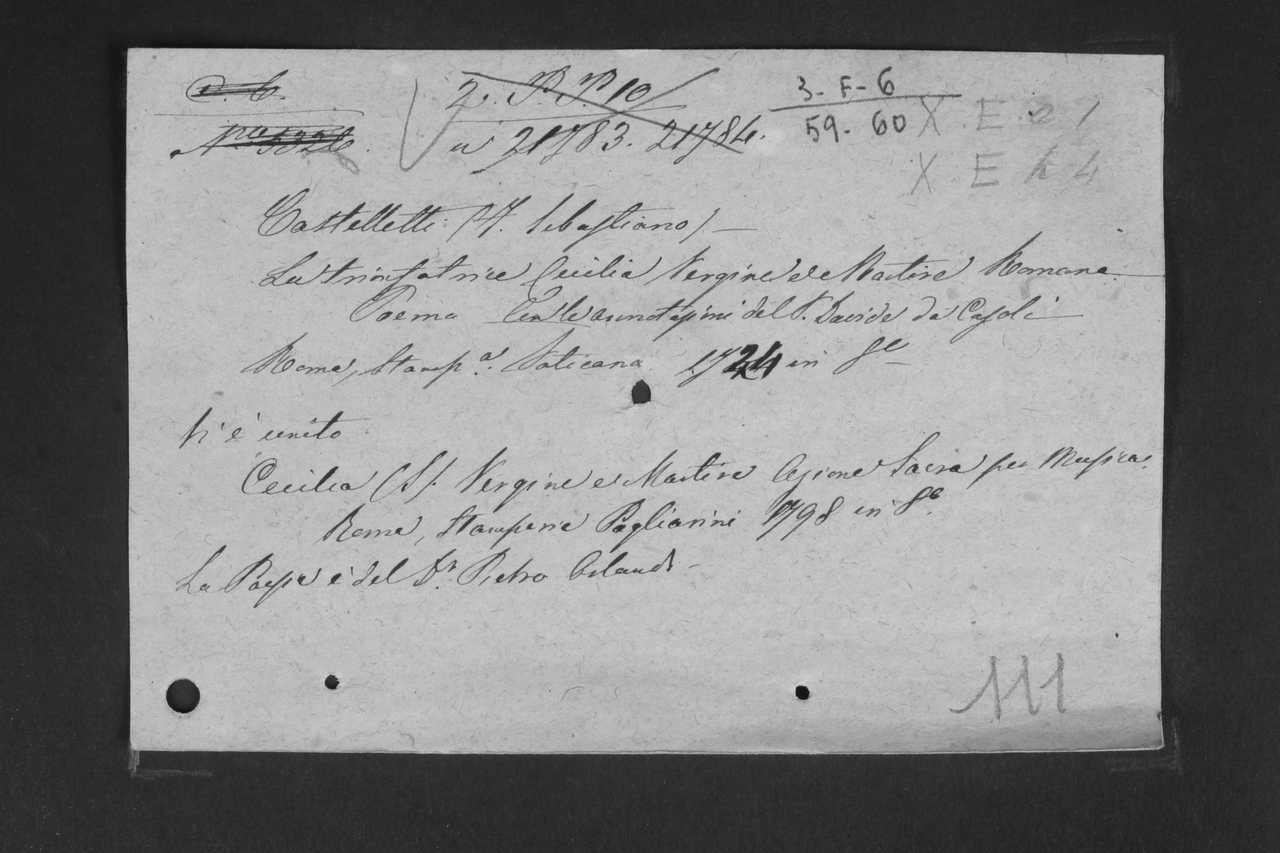 2. P. P. 10
3-F-6
n.i 21783. 21784.
59-60
X E 21
X E 4
Castelletti (S. Sebastiano) —
La trionfatrice Cecilia Vergine e Martire Romana.
Poema Con le annotazioni del P. Davide da
Roma, Stamp.a Vaticana 1724 in 8.e
Vi è unito
Cecilia (S). Vergine e Martire Azione Sacra per Musica.
Roma, Stamperia Pagliarini 1798 in 8.e
La Poesia è del Sr. Pietro Orlandi
111